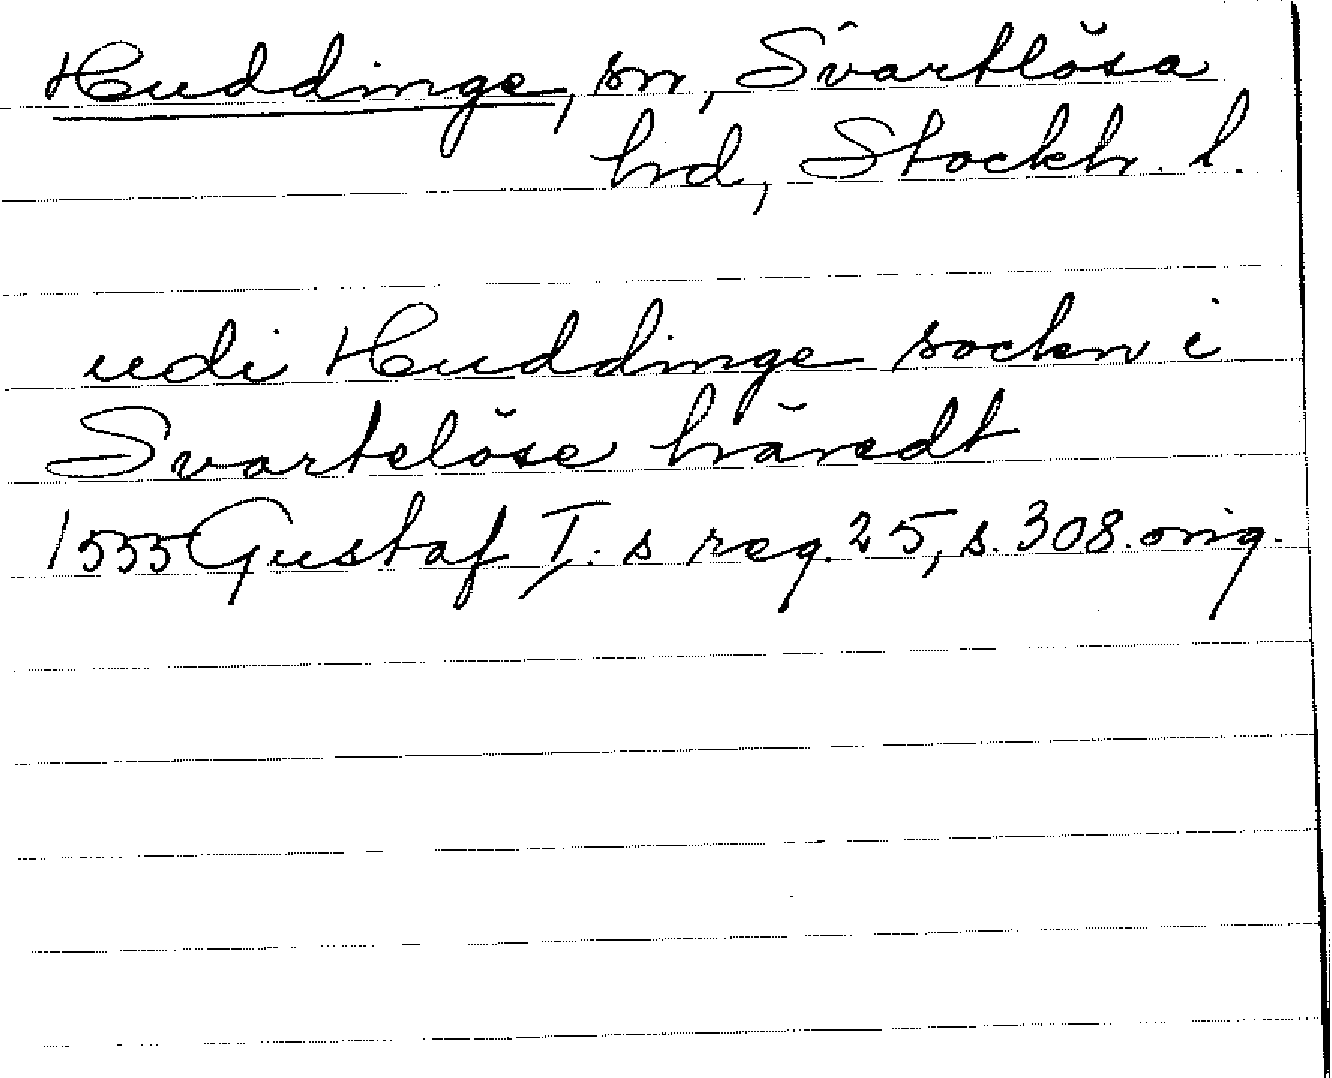 Huddinge, sn, Svartlösa
hrd, Stockh. l.
udi Huddinge sockn i
Svartelöse härædt
1555 Gustaf I:s reg. 25, s. 308. orig.